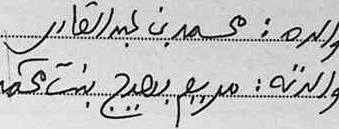 والده : محمد بن عبد القادر
والدته : مريم بهيج بنت محمد